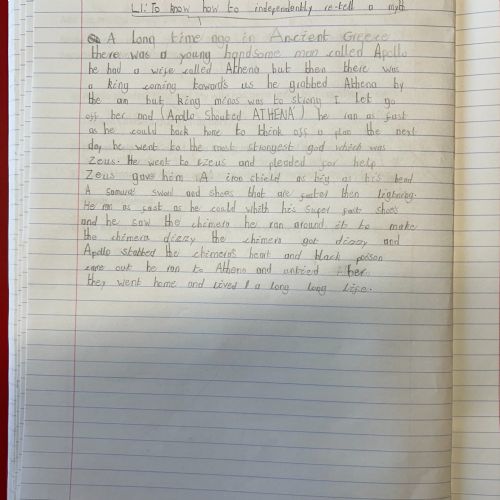 LI: To know how to independently re-tell a myth
A long time ago in Ancient Greece
there was a young handsome man called Apollo
he had a wife called Athena but then there was
a king coming towards us he grabbed Athena by
the arm but king minos was to strong I let go
off her and (Apollo Shouted ATHENA) he ran as fast
as he could back home to think off a plan the next
day he went to the most strongest god which was
Zeus. He went to Zeus and pleaded for help
Zeus gave him A iron shield as big as his head
A samurai sword and shoes that are faster then lightning.
He ran as fast as he could whith his super fast shoes
and he saw the chimera he ran around it to make
the chimera dizzy the chimera got dizzy and
Apollo stabbed the chimera's heart and black poison
came out he ran to Athena and untied her
they went home and lived a long long life.